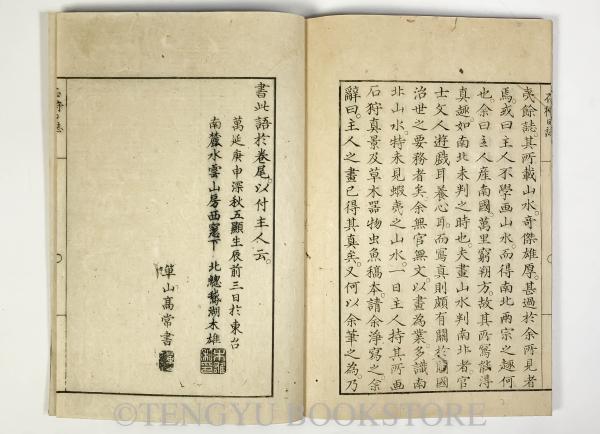 歳餘誌其所載山水。奇傑雄厚。甚過於余所見者
焉。或曰主人不學画山水。而得南北両宗之趣何
也。余曰主人産南國。萬里窮朔方。故其所寫能得
真趣。如南北未判之時也。夫畫山水判南北者。官
士文人遊戯耳。養心耳。而寫真則頗有關於國
治世之要務者矣。余無官無文。以畫為業。多識南
北山水。特未見蝦夷之山水。一日主人持其所画
石狩真景及草木器物虫魚稿本。請余浄寫之。余
辭曰。主人之畫已得其真矣。又何以余筆之為。乃
書此語於卷尾。以付主人云。
萬延庚申深秋五顯生辰前三日於東台
南麓水雲山房西窓下 北總鵞湖木雄
山高常書
石狩日誌
©TENGYU BOOKSTORE